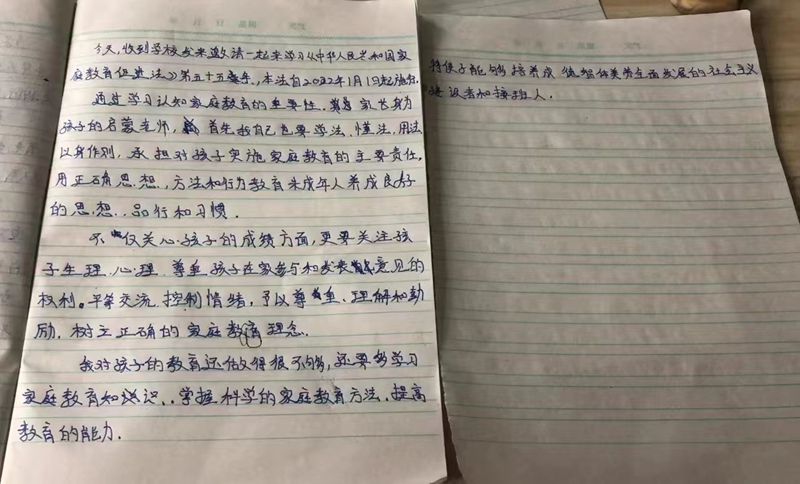 今天,收到学校发来邀请一起来学习《中华人民共和国家
庭教育促进法》第五十五条,本法自2022年1月1日起施行.
通过学习认知家庭教育的重要性.家长身为
孩子的启蒙老师,首先我自己也要学法、懂法,用法
以身作则,承担对孩子实施家庭教育的主要责任,
用正确思想,方法和行为教育未成年人养成良好
的思想、品行和习惯.
不仅关心孩子的成绩方面,更要关注孩
子生理、心理、尊重孩子在家参与和发表意见的
权利。平等交流,控制情绪,予以尊重、理解和鼓
励.树立正确的家庭教育理念.
我对孩子的教育还做得很不够,还要多学习
家庭教育知识、掌握科学的家庭教育方法.提高
教育的能力.
将使子能够培养成德智体美劳全面发展的社会主义
建设者和接班人.